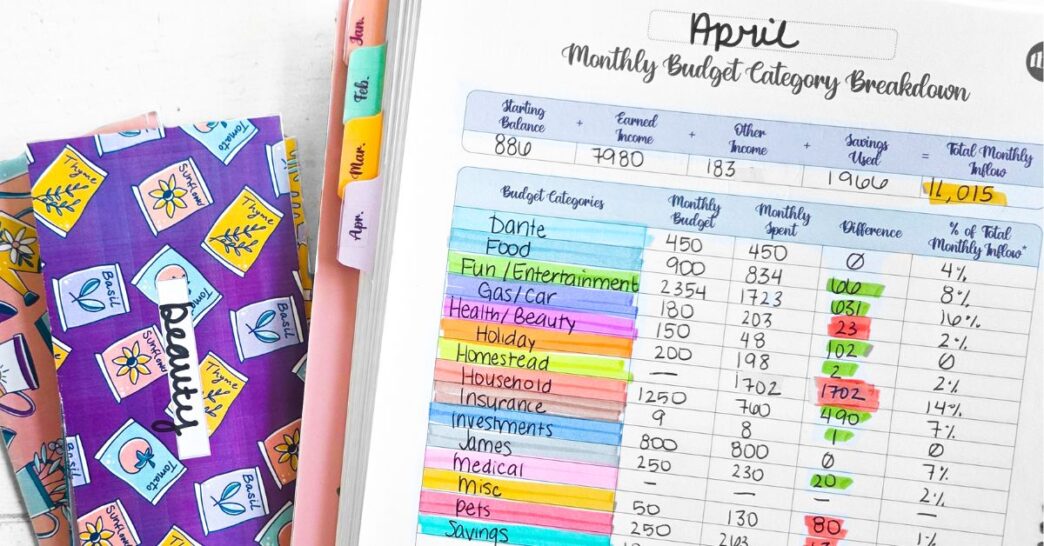 April
Monthly Budget Category Breakdown
Starting Balance + Earned Income + Other Income + Savings Used = Total Monthly Inflow
886 7980 183 1966 11,015
Budget Categories Monthly Budget Monthly Spent Difference % of Total Monthly Inflow*
Dante 450 450 0 4%
Food 900 834 66 8%
Fun/Entertainment 2354 1723 631 16%
Gas/car 180 203 23 2%
Health/Beauty 150 48 102 0
Holiday 200 198 2 2%
Homestead — 1702 1702 14%
Household 1250 760 490 7%
Insurance 9 8 1 0
Investments 800 800 0 7%
James 250 230 20 2%
Medical — — — —
Misc 50 130 80 1%
Pets 250 263
Savings
Jan.
Feb.
Mar.
Apr.
Beauty
Thyme
Sunflower
Tomato
Thyme
Basil
Tomato
Basil
Sunflower
Thyme
Tomato
Sunflower
Basil
Basil
Sunflower
Thyme